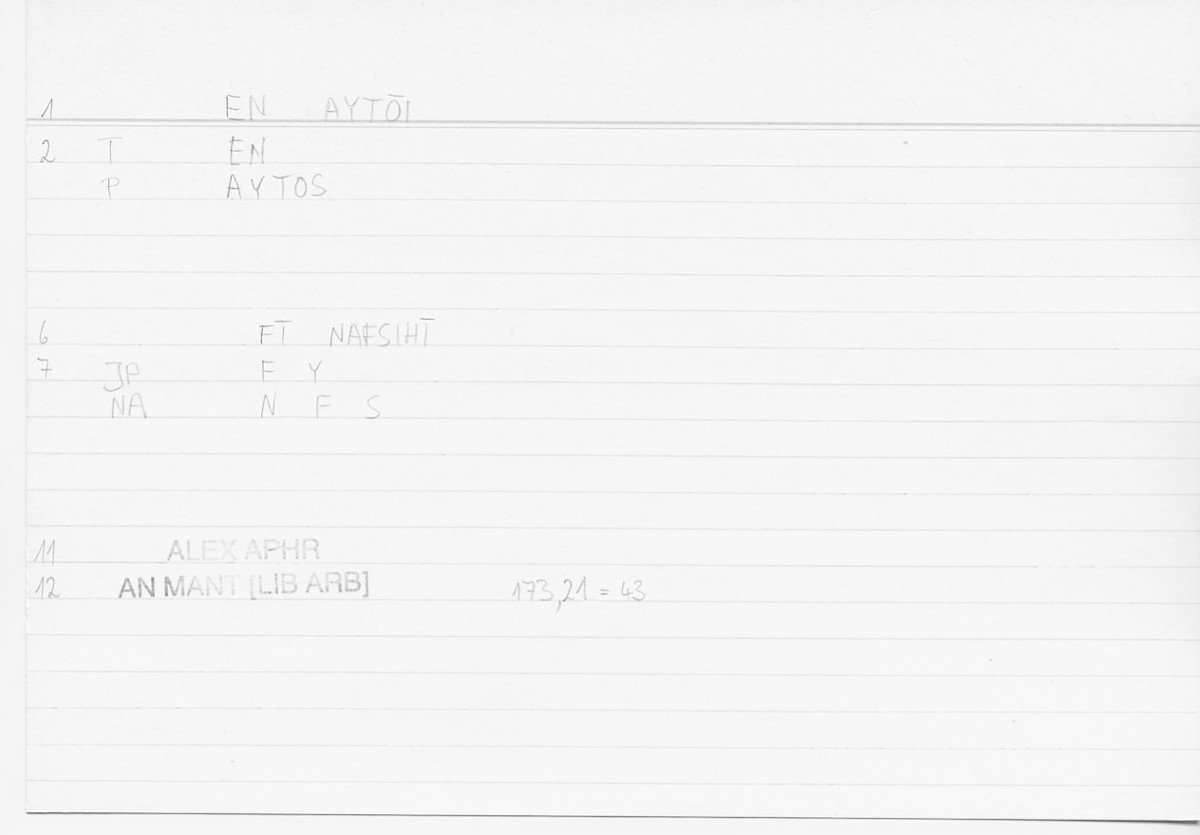 1 EN AYTŌI
2 T EN
P AYTOS
6 FĪ NAFSIHĪ
7 JP F Y
NA N F S
11 ALEX APHR
12 AN MANT [LIB ARB] 173,21 = 43